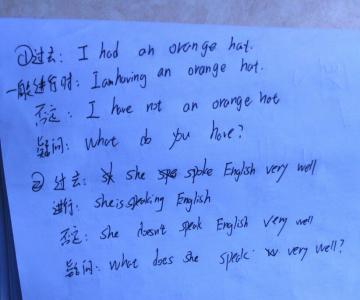 ①过去: I had an orange hat.
一般进行时: I am having an orange hat.
否定: I have not an orange hat
疑问: What do you have?
② 过去: she spoke English very well
进行: she is speaking English
否定: she doesn't speak English very well
疑问: what does she speak very well?